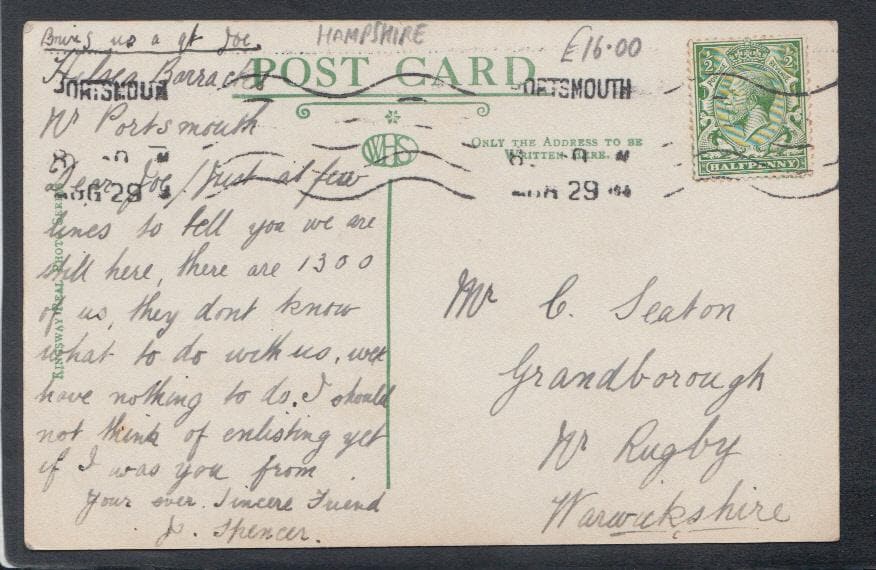 Bring us a qt Joe
HAMPSHIRE
£16·00
Hilsea Barracks
POST CARD
PORTSMOUTH
PORTSMOUTH
Nr Portsmouth
WHS
ONLY THE ADDRESS TO BE
WRITTEN HERE.
HALFPENNY
AUG 29 14
AUG 29 14
KINGSWAY REAL PHOTO SERIES
Dear Joe/Just a few
lines to tell you we are
still here, there are 1300
of us, they dont know
what to do with us. we
have nothing to do. I should
not think of enlisting yet
if I was you from
Your ever Sincere Friend
J. Spencer.
Mr C. Seaton
Grandborough
Nr Rugby
Warwickshire